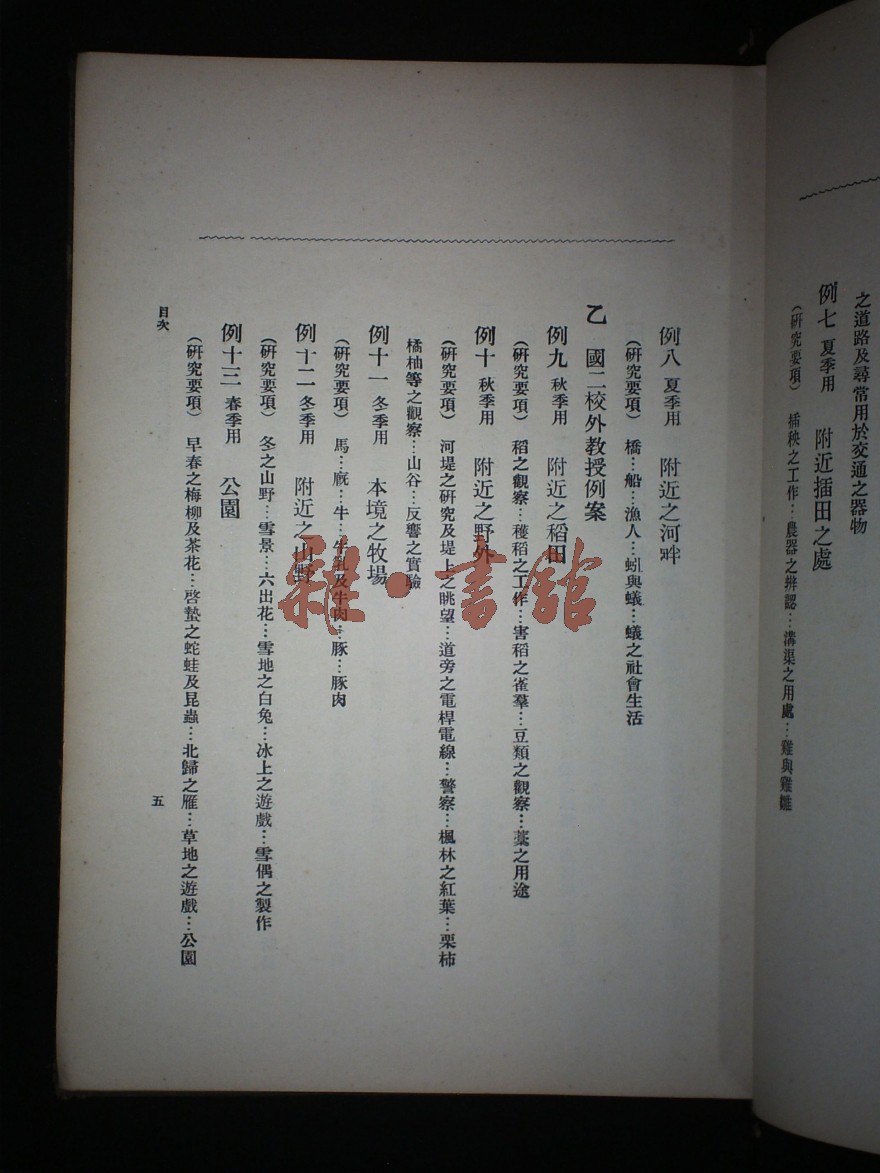 之道路及尋常用於交通之器物
例七 夏季用 附近插田之處
(研究要項) 插秧之工作…農器之辨認…溝渠之用處…雞與雞雛
例八 夏季用 附近之河畔
(研究要項) 橋…船…漁人…蚓與蟻…蟻之社會生活
乙 國二校外教授例案
例九 秋季用 附近之稻田
(研究要項) 稻之觀察…穫稻之工作…害稻之雀羣…豆類之觀察…藁之用途
例十 秋季用 附近之野外
(研究要項) 河堤之研究及堤上之眺望…道旁之電桿電線…警察…楓林之紅葉…栗柿
橘柚等之觀察…山谷…反響之實驗
例十一 冬季用 本境之牧場
(研究要項) 馬…廐…牛…牛乳及牛肉…豚…豚肉
例十二 冬季用 附近之山野
(研究要項) 冬之山野…雪景…六出花…雪地之白兔…冰上之遊戲…雪偶之製作
例十三 春季用 公園
(研究要項) 早春之梅柳及茶花…啓蟄之蛇蛙及昆蟲…北歸之雁…草地之遊戲…公園
目次
五
雜·書館